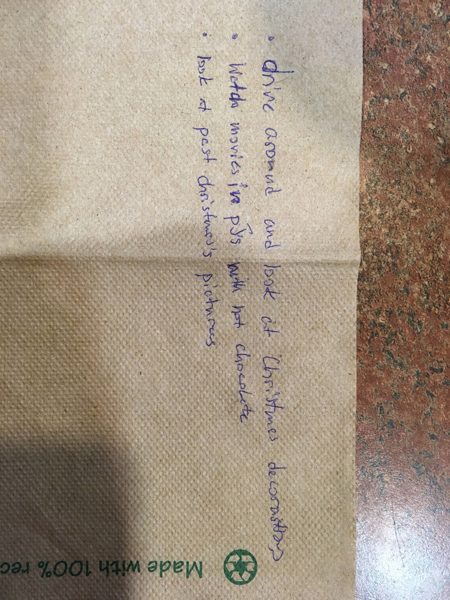 • drive around and look at Christmas decorations
• Watch movies in pjs with hot chocolate
• look at past christmas's pictures
Made with 100% rec